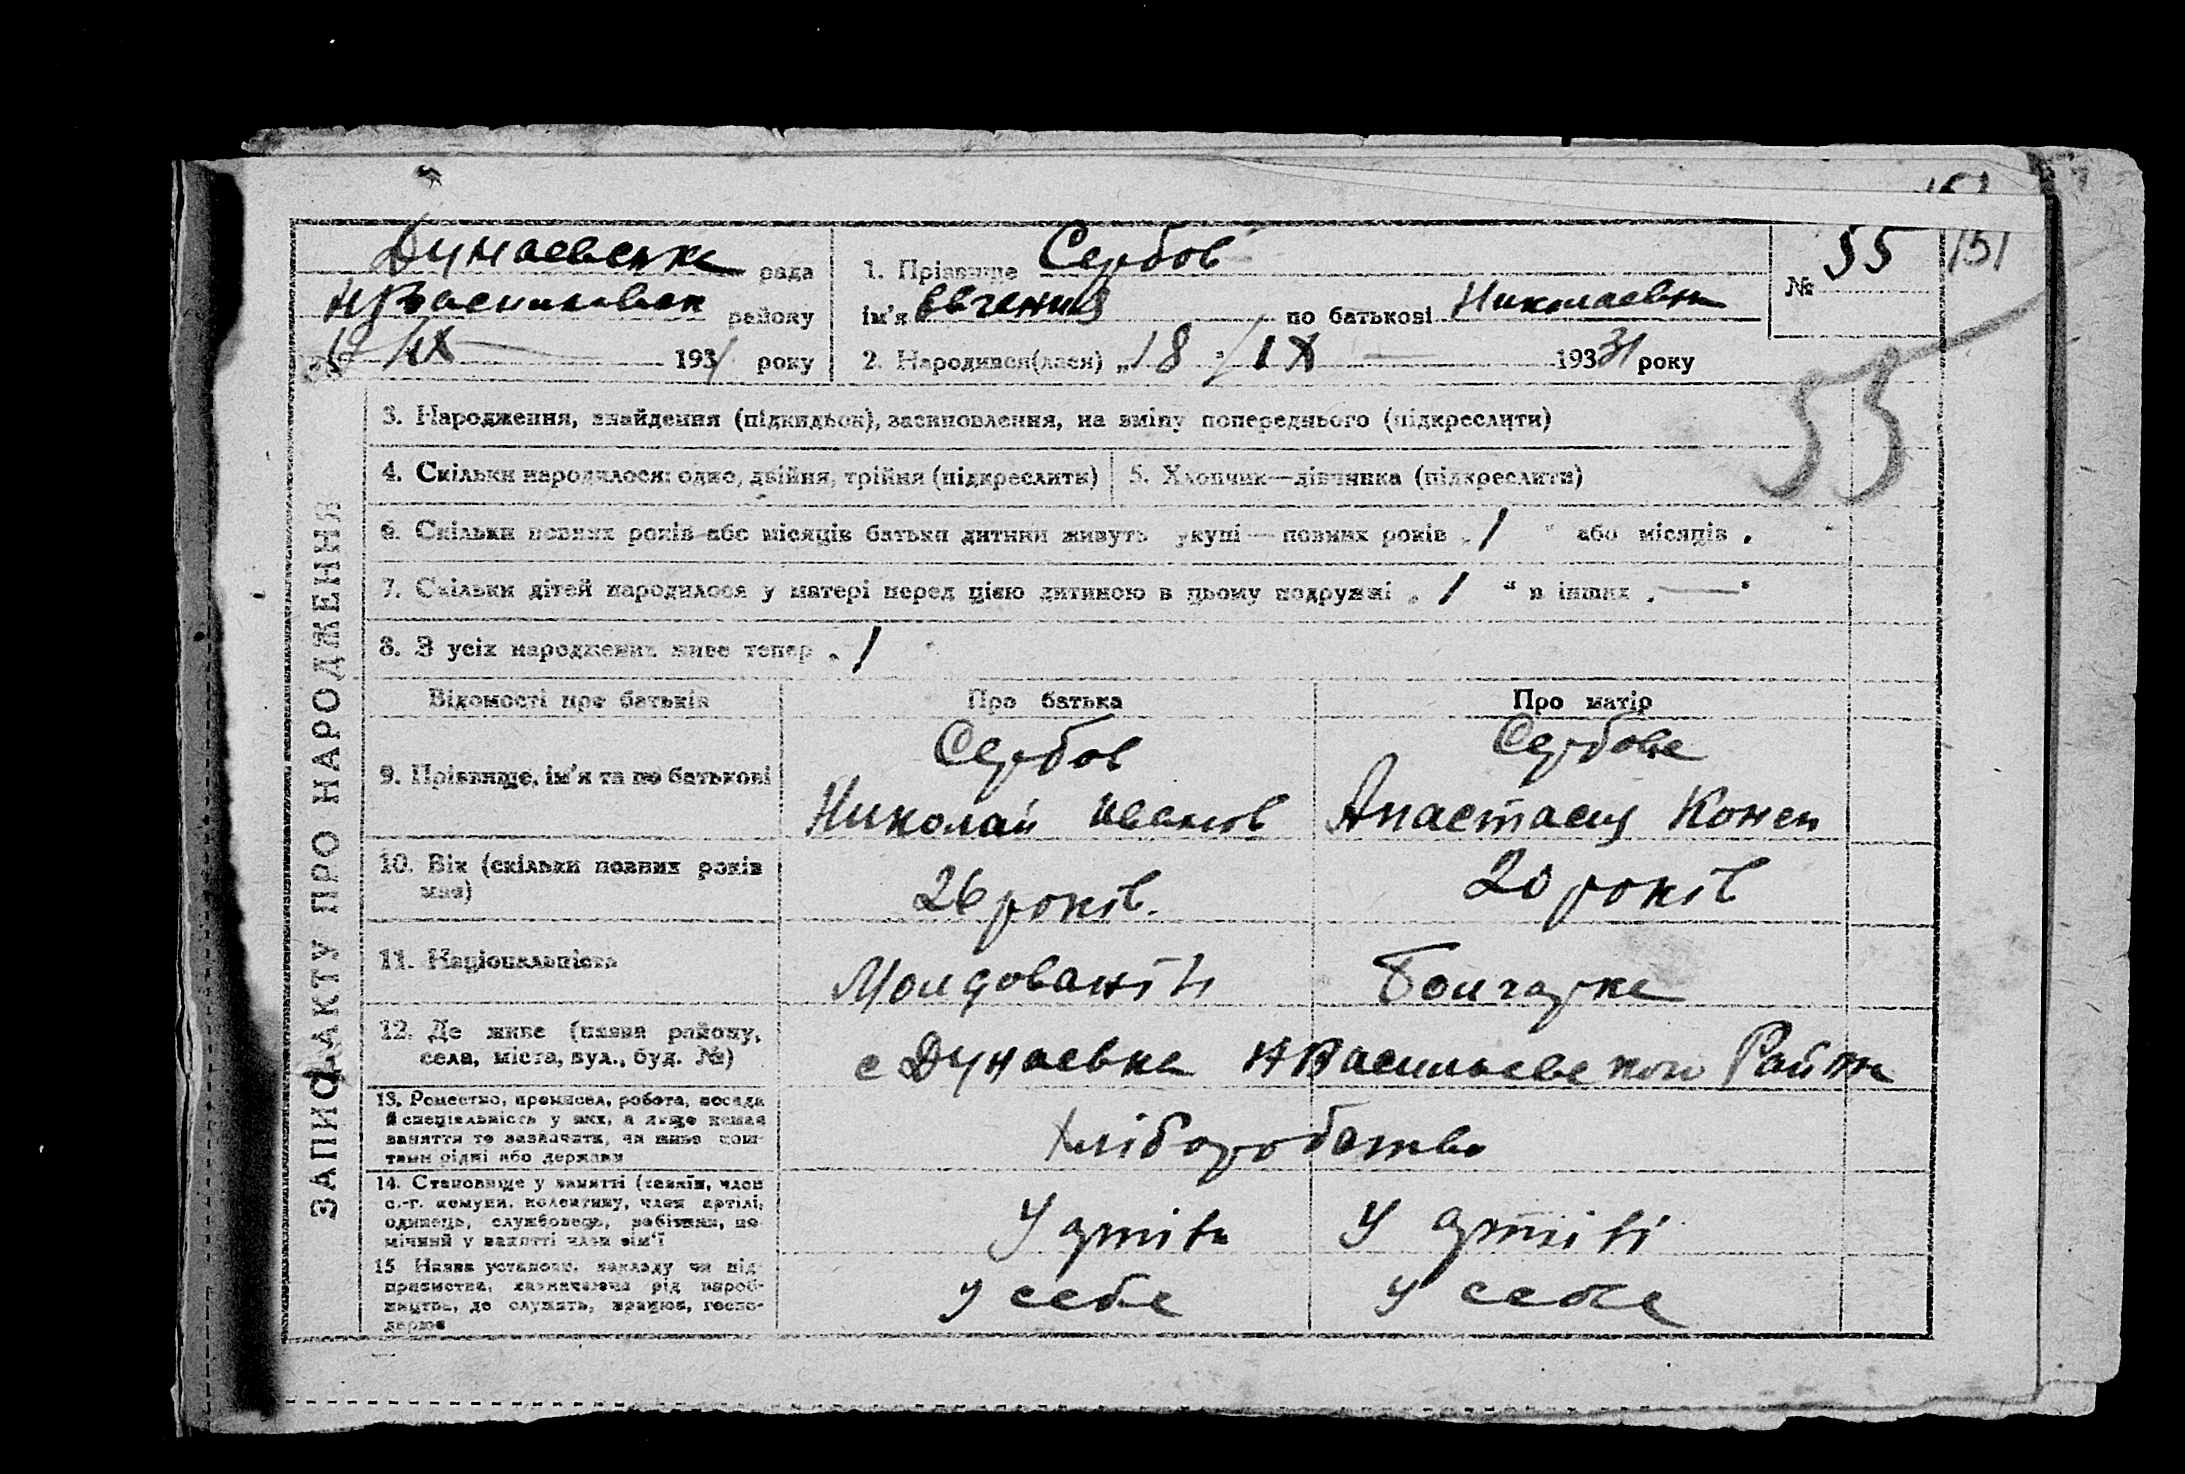 151
Дунаевська рада
НВасильевськ району
19/IX 1931 року
1. Прізвище Сербов
ім'я Евгения по батькові Николаевн
2. Народився(лася) „18"/IX 19331 року
№ 55
151
55
ЗАПИС АКТУ ПРО НАРОДЖЕННЯ
3. Народження, знайдення (підкидьок), засиновлення, на зміну попереднього (підкреслити)
4. Скільки народилося: одно, двійня, трійня (підкреслити)
5. Хлопчик—дівчинка (підкреслити)
6. Скільки повних років або місяців батьки дитини живуть укупі — повних років „1" або місяців „
7. Скільки дітей народилося у матері перед цією дитиною в цьому подружжі „1" в інших „—"
8. З усіх народжених живе тепер „1
Відомості про батьків
Про батька
Про матір
9. Прізвище, ім'я та по батькові
Сербов
Николай Иванов
Сербова
Анастасия
10. Вік (скільки повних років
має)
26 років.
20 років
11. Національність
Молдовані
Болгарка
12. Де живе (назва району,
села, міста, вул., буд. №)
с Дунаевка НВасильевского Района
13. Ремество, промисел, робота, посада
й спеціяльність у них, а якщо немає
заняття то зазначити, чи живе кош-
тами рідні або держави
Хліборобство
14. Становище у занятті (хазяїн, член
с.-г. комуни, колективу, член артілі,
одинець, службовець, робітник, по-
мічний у занятті член сім'ї
У артілі
У артілі
15 Назва установи, закладу чи під-
приємства, зазначаючи рід вироб-
ництва, де служить, працює, госпо-
дарює
у себе
у себе